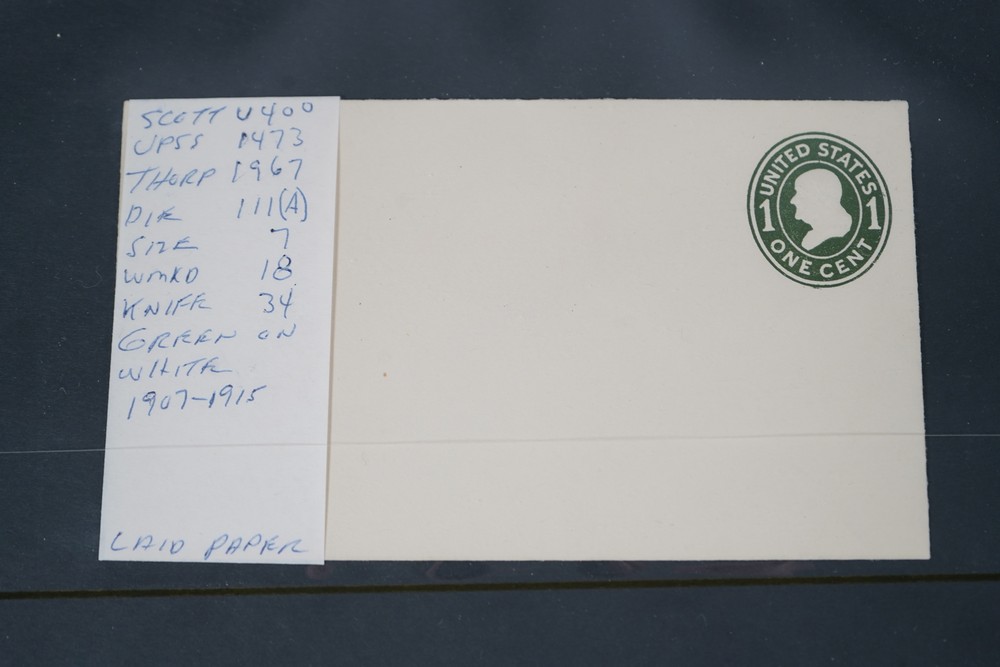 SCOTT U400
UPSS 1473
THORP 1967
DIE 111(A)
SIZE 7
WMKD 18
KNIFE 34
GREEN ON
WHITE
1907-1915
LAID PAPER
UNITED STATES
1 1
ONE CENT